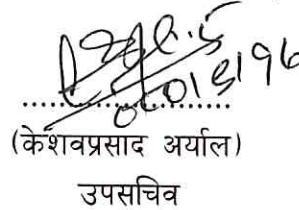 (केशवप्रसाद अर्याल)
उपसचिव